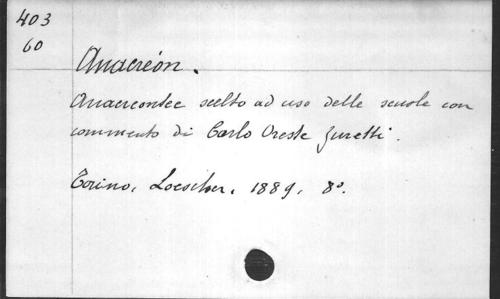 403
60
Anacreón.
Anacreontee scelto ad uso delle scuole con
commento di Carlo Oreste Zuretti.
Torino, Loescher, 1889, 8º.